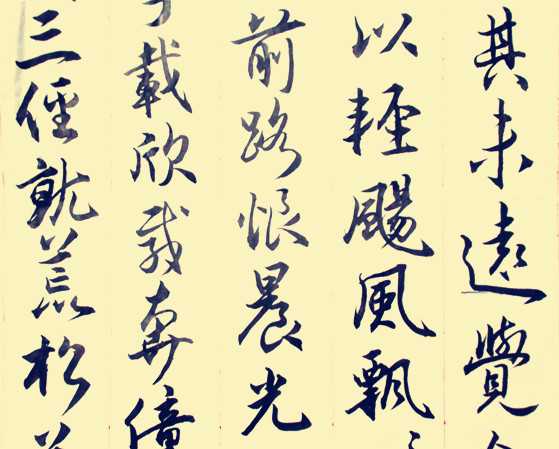 其未遠覺
以輕颺風飄
前路恨晨光
載欣載奔僮
三徑就荒松